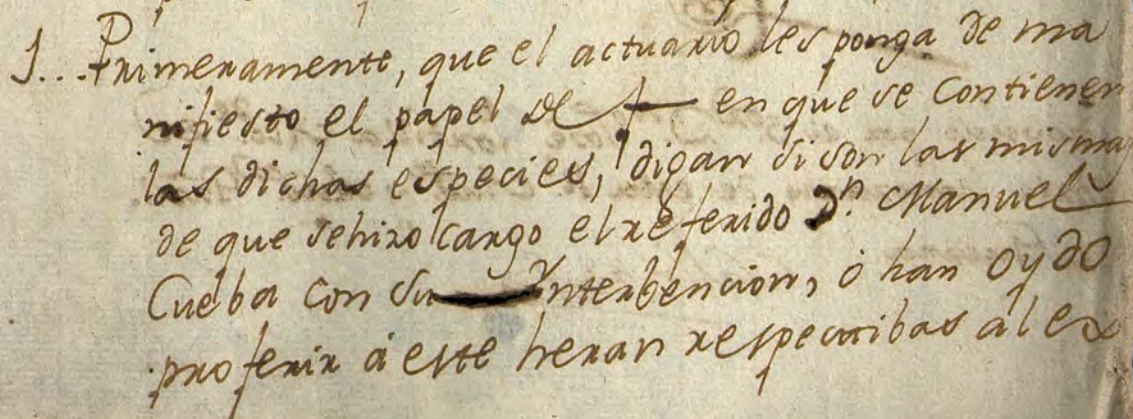 1... Primeramente, que el actuario les ponga de ma
nifiesto el papel de f en que se Contienen
las dichas especies, digan si son las mismas
de que se hizo cargo el referido Dn. Manuel
Cueba con su Ynterbencion, ó han Oydo
proferir á este heran respectibas al ex